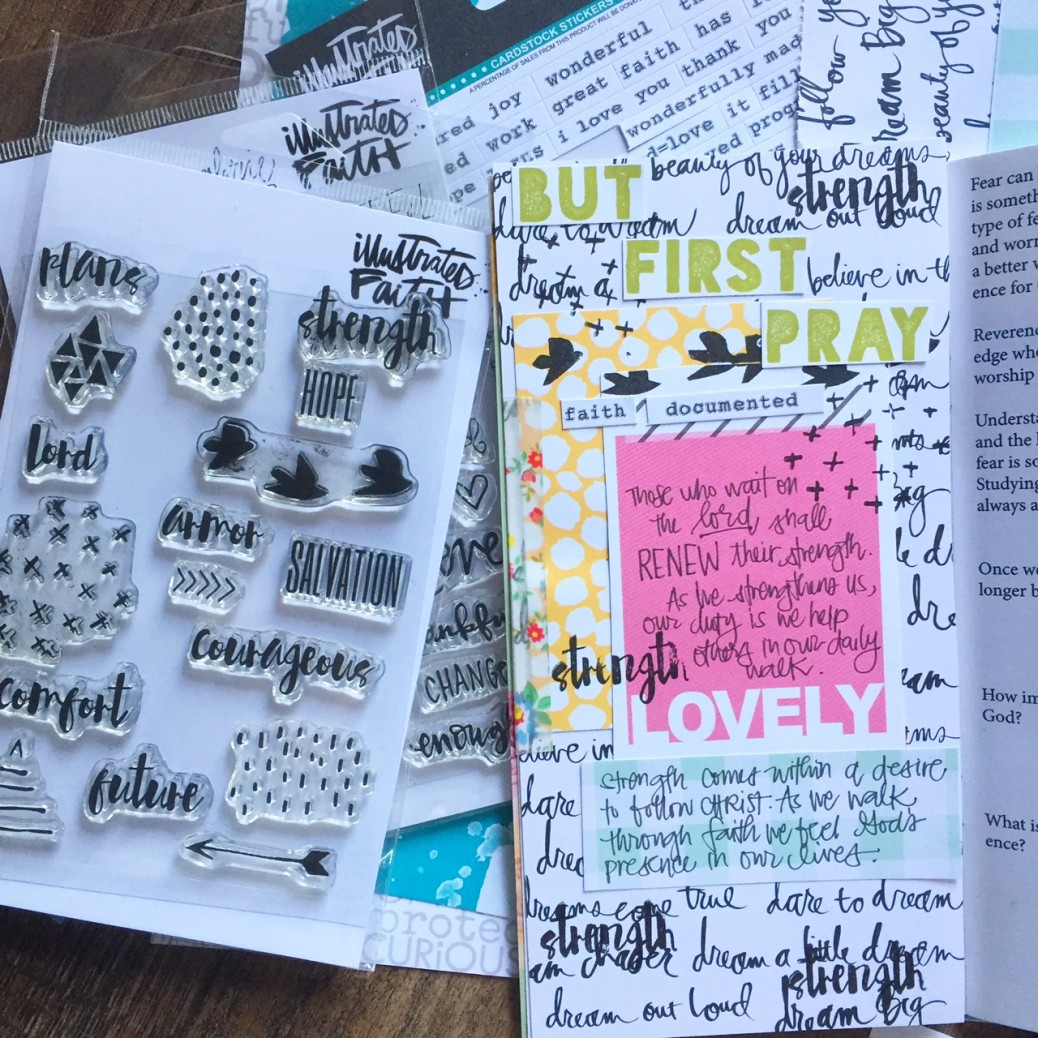 illustrated
illustrated
FAITH
illustrated
FAITH
CARDSTOCK STICKERS
A PERCENTAGE OF SALES FROM THIS PRODUCT WILL BE DONATE
joy
wonderful
work
great
faith
has
i love you
thank you
wonderfully made
love
it
fill
follow
dream Big
beauty of
plans
strength
HOPE
Lord
armor
SALVATION
courageous
comfort
future
CHANGE
enough
protec
CURIOUS
beauty of your dreams
strength
BUT
dare to dream
dream out loud
FIRST
dream a
believe in th
PRAY
faith
documented
Those who wait on
the lord shall
RENEW their strength.
As he strengthens us,
our duty is we help
others in our daily
walk.
strength
LOVELY
believe in
strength comes within a desire
to follow CHRIST. As we walk
through faith we feel God's
presence in our lives.
dare
dreams come true
dare to dream
strength
dream a little dream
strength
dream out loud
dream Big
Fear can
is someth
type of fe
and worr
a better w
ence for
Reverenc
edge who
worship
Understa
and the l
fear is so
Studying
always a
Once we
longer b
How im
God?
What is
ence?